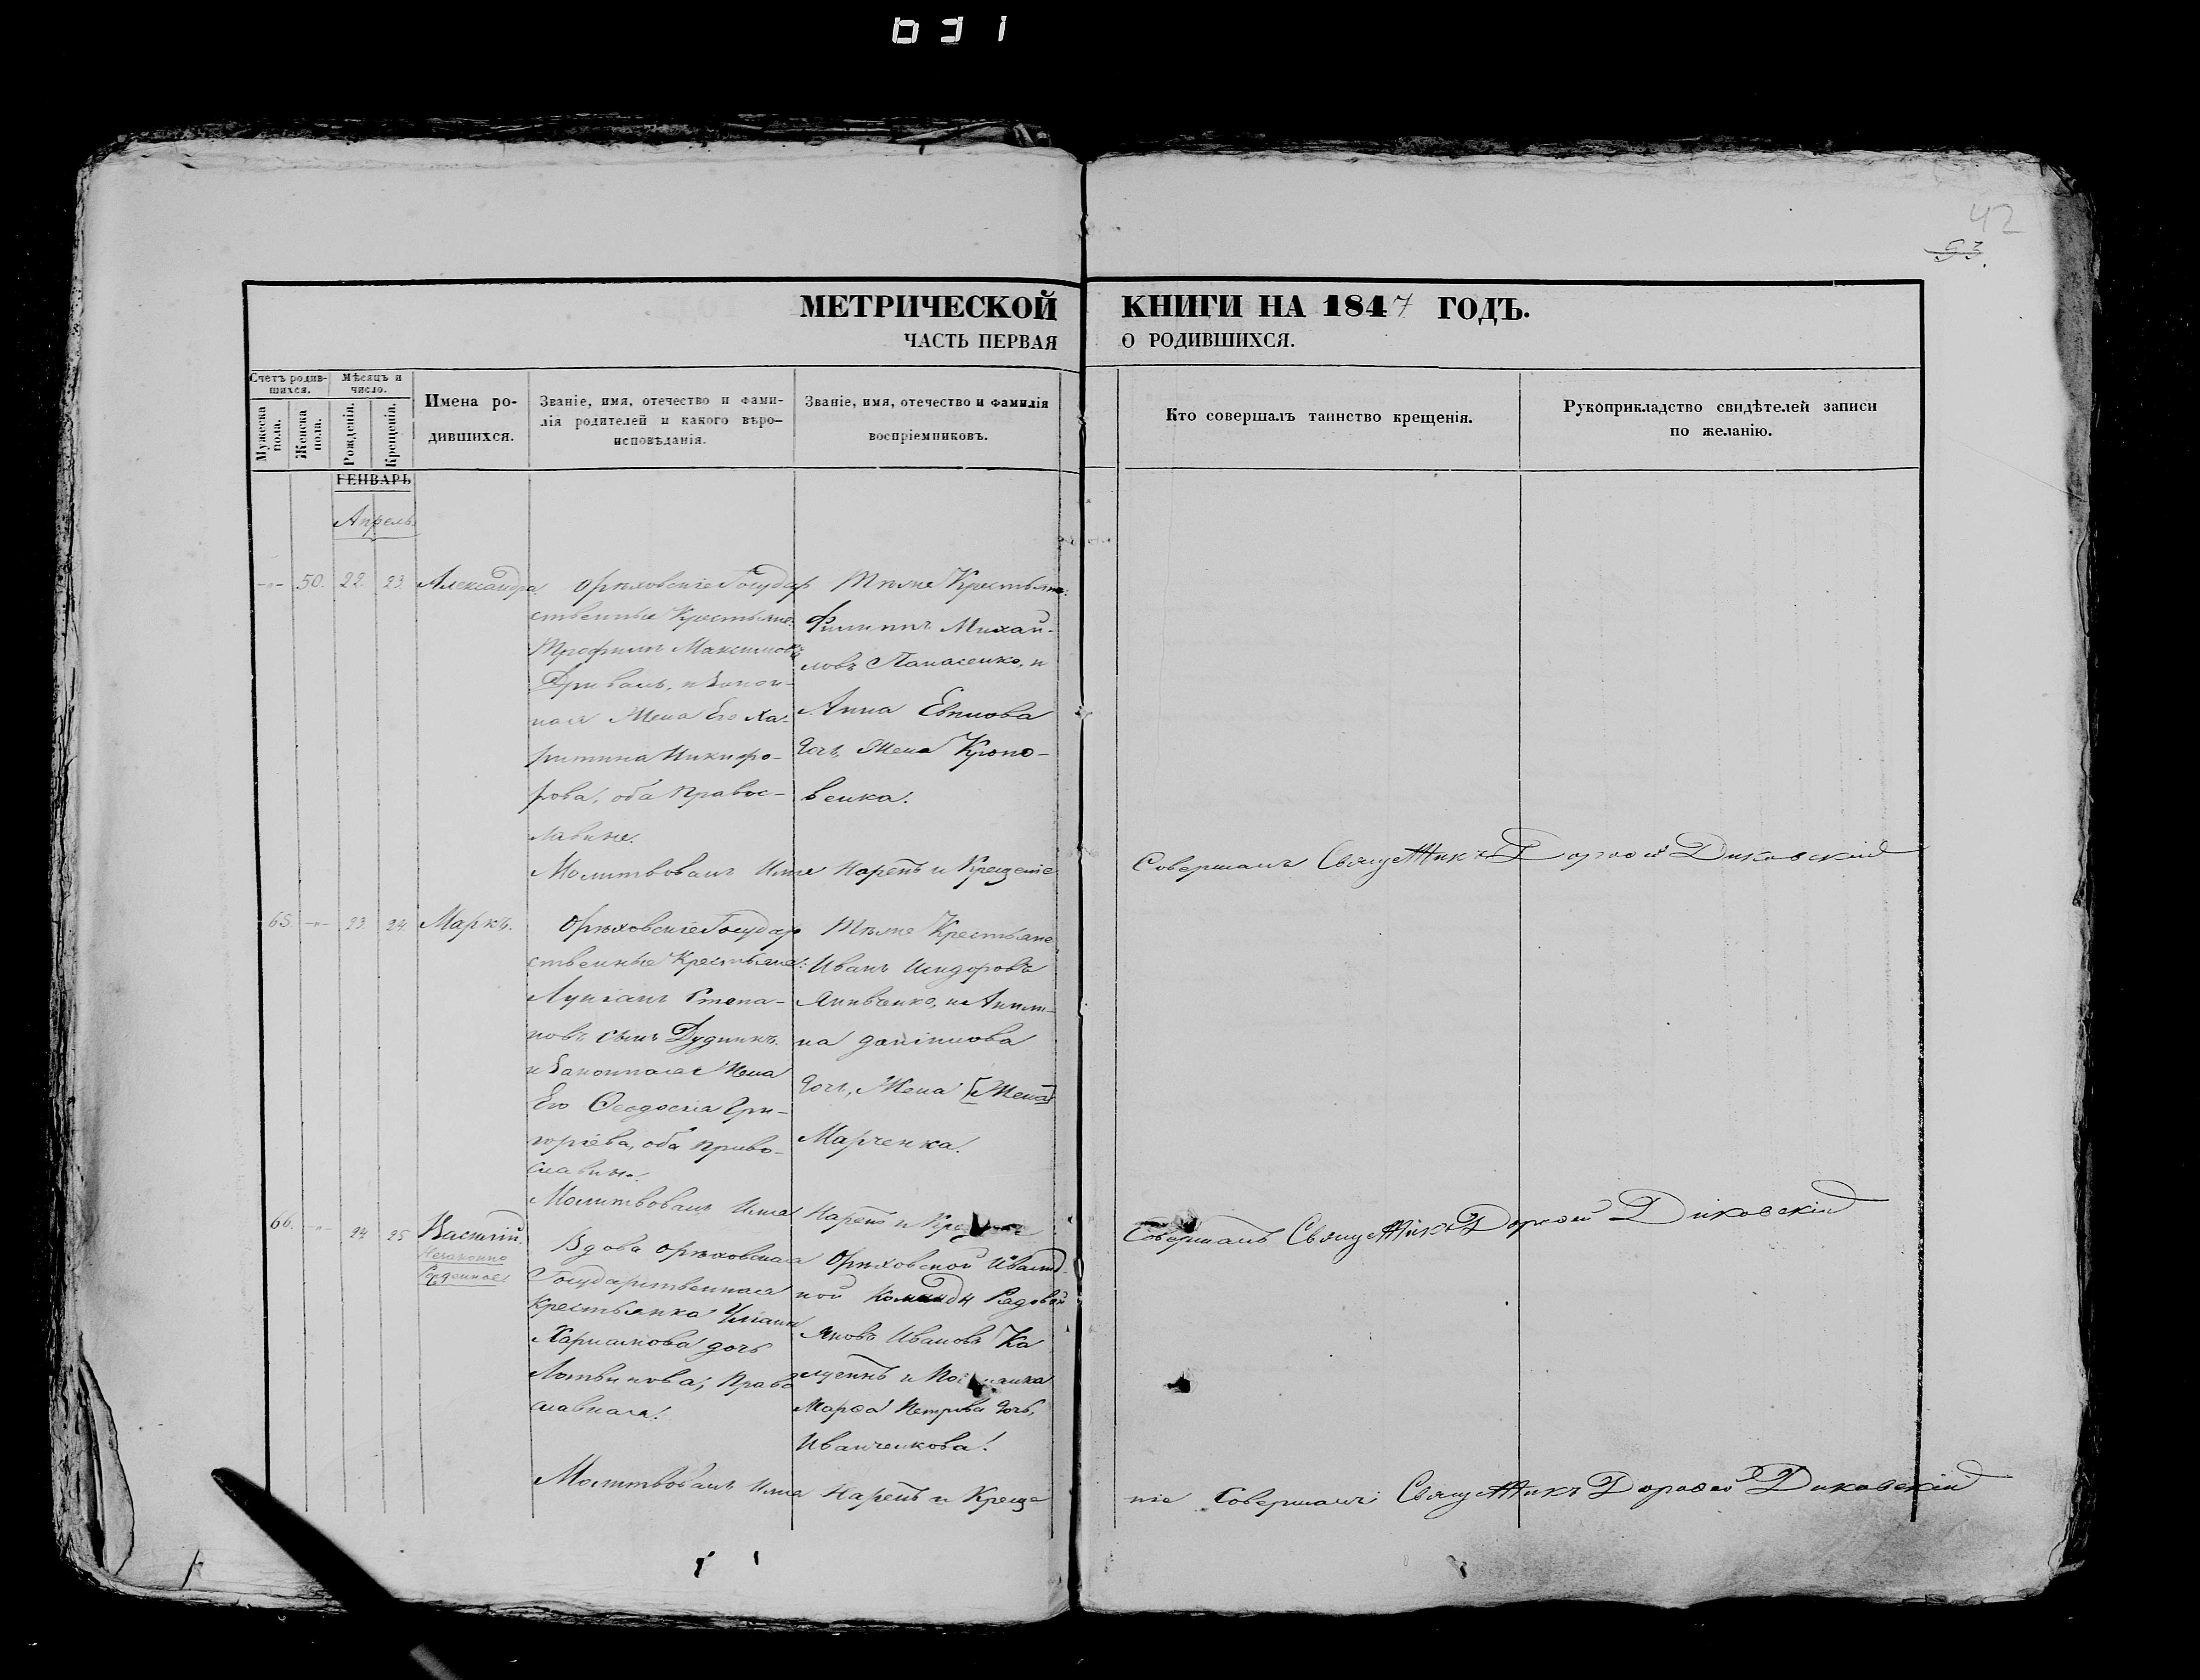 031
42
93.
МЕТРИЧЕСКОЙ КНИГИ НА 1847 ГОДЪ.
ЧАСТЬ ПЕРВАЯ О РОДИВШИХСЯ.
Счетъ родив-
шихся.
Мужеска
пола.
Женска
пола.
Мѣсяцъ и
число.
Рожденія.
Крещенія.
Имена ро-
дившихся.
Званіе, имя, отечество и фами-
лія родителей и какого вѣро-
исповѣданія.
Званіе, имя, отечество и фамилія
воспріемниковъ.
Кто совершалъ таинство крещенія.
Рукоприкладство свидѣтелей записи
по желанію.
ГЕНВАРЬ
Апрель.
-"- 50. 22. 23. Александра.
Орѣховскіе Государ
ственные Крестьяне:
Трофимъ Максимовъ
Дриваль, и Закон-
ная Жена Его Ха-
ритина Никифо-
рова, оба Правос-
лавные.
Тѣже Крестьяне:
Филиппъ Михай-
ловъ Панасенко, и
Анна
дочь, Жена
венка.
Молитвовалъ Имя Нарекъ и Крещеніе
Совершалъ Священникъ Дорофей Диковскій
65. -"- 23. 24. Маркъ.
Орѣховскіе Государ
ственные Крестьяне:
Лукіанъ Степа-
новъ сынъ Дудникъ.
и Законная Жена
Его Ѳеодосія Гри-
горіева, оба Право-
славны.
Тѣже Крестьяне
Иванъ Исидоровъ
и Акили-
на
дочь, Жена [Жена]
Марченка.
Молитвовалъ Имя Нарекъ и
Совершалъ Священникъ Дорофей Диковскій
66. -"- 24 25 Василій.
Незаконно
Рожденный
Вдова Орѣховская
Государственная
Крестьянка Уліана
Харлампова дочь
Логвинова, Право
славная.
Орѣховской Инвалид-
ной Команды Рядовой
Яковъ Ивановъ Ка
и
Марѳа Петрова дочь,
Иванченкова.
Молитвовалъ Имя Нарекъ и Креще
ніе Совершалъ Священникъ Дорофей Диковскій